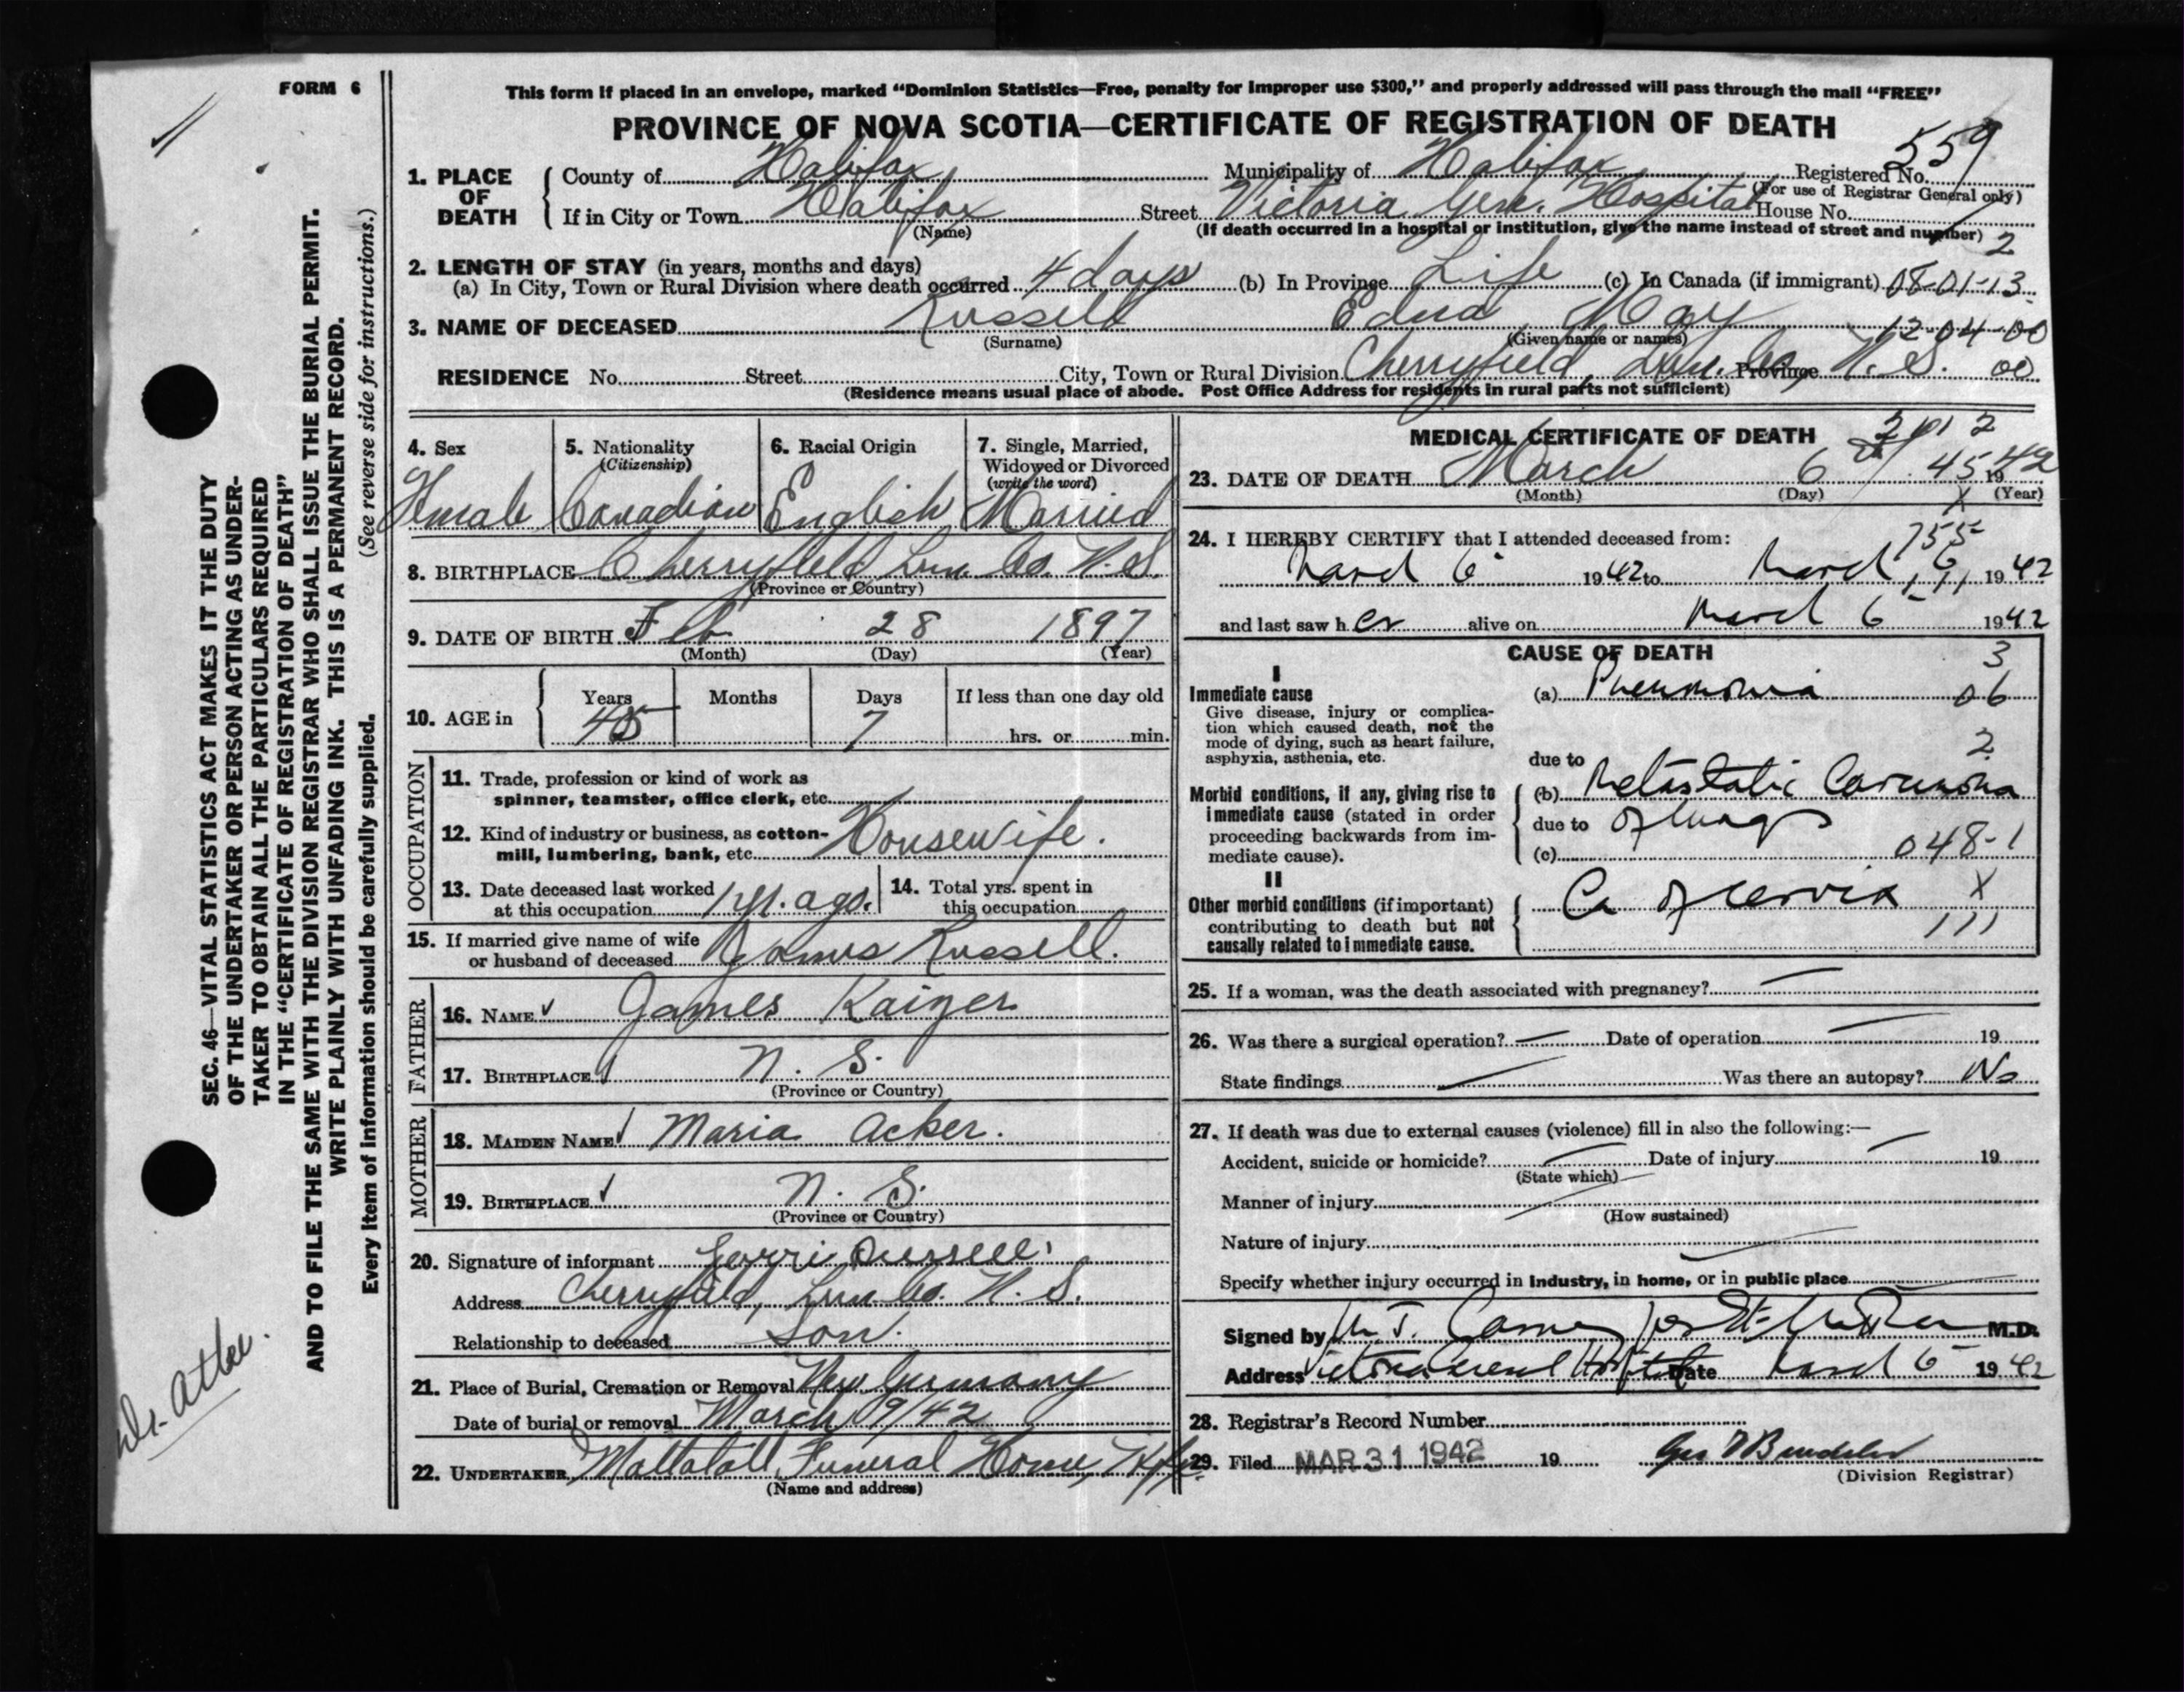 FORM 6
This form if placed in an envelope, marked “Dominion Statistics—Free, penalty for improper use $300,” and properly addressed will pass through the mail “FREE”
PROVINCE OF NOVA SCOTIA—CERTIFICATE OF REGISTRATION OF DEATH
559
1. PLACE OF DEATH
County of Halifax Municipality of Halifax Registered No.
(For use of Registrar General only)
If in City or Town Halifax Street Victoria Gen. Hospital House No.
(Name) (If death occurred in a hospital or institution, give the name instead of street and number) 2
2. LENGTH OF STAY (in years, months and days)
(a) In City, Town or Rural Division where death occurred 4 days (b) In Province Life (c) In Canada (if immigrant) 08-01-13
3. NAME OF DECEASED Russell Edna May 12-04-00
(Surname) (Given name or names)
RESIDENCE No. Street City, Town or Rural Division Cherryfield, Lun. Co, Province N. S. 00
(Residence means usual place of abode. Post Office Address for residents in rural parts not sufficient)
4. Sex 5. Nationality (Citizenship) 6. Racial Origin 7. Single, Married, Widowed or Divorced (write the word)
Female Canadian English Married
8. BIRTHPLACE Cherryfield Lun Co. N.S.
(Province or Country)
9. DATE OF BIRTH Feb 28 1897
(Month) (Day) (Year)
10. AGE in Years Months Days If less than one day old
45 7 hrs. or min.
OCCUPATION
11. Trade, profession or kind of work as spinner, teamster, office clerk, etc.
12. Kind of industry or business, as cotton-mill, lumbering, bank, etc. Housewife.
13. Date deceased last worked at this occupation 1 yr. ago. 14. Total yrs. spent in this occupation
15. If married give name of wife or husband of deceased James Russell.
FATHER
16. NAME James Kaizer
17. BIRTHPLACE N. S.
(Province or Country)
MOTHER
18. MAIDEN NAME Maria Acker.
19. BIRTHPLACE N. S.
(Province or Country)
20. Signature of informant Russell
Address Cherryfield, Lun. Co. N. S.
Relationship to deceased Son.
21. Place of Burial, Cremation or Removal New Germany
Date of burial or removal March 9/42
22. UNDERTAKER Mattatall Funeral Home, Hfx.
(Name and address)
MEDICAL CERTIFICATE OF DEATH
23. DATE OF DEATH March 6 45 1942
(Month) (Day) (Year)
24. I HEREBY CERTIFY that I attended deceased from: 755
March 6 1942 to March 6 1942
and last saw her alive on March 6 1942
CAUSE OF DEATH 3
I
Immediate cause (a) Pneumonia 06
Give disease, injury or complication which caused death, not the mode of dying, such as heart failure, asphyxia, asthenia, etc.
2
due to
Morbid conditions, if any, giving rise to immediate cause (stated in order proceeding backwards from immediate cause).
(b) Metastatic Carcinoma
due to of lungs
(c) 048-1
II
Other morbid conditions (if important) contributing to death but not causally related to immediate cause.
Ca of cervix X
111
25. If a woman, was the death associated with pregnancy? —
26. Was there a surgical operation? — Date of operation — 19
State findings — Was there an autopsy? No
27. If death was due to external causes (violence) fill in also the following:—
Accident, suicide or homicide? — Date of injury — 19
(State which)
Manner of injury
(How sustained)
Nature of injury
Specify whether injury occurred in industry, in home, or in public place
Signed by M.D.
Address Victoria General Hospital Date March 6 1942
28. Registrar's Record Number
29. Filed MAR 31 1942 19
(Division Registrar)
SEC. 46—VITAL STATISTICS ACT MAKES IT THE DUTY
OF THE UNDERTAKER OR PERSON ACTING AS UNDER-
TAKER TO OBTAIN ALL THE PARTICULARS REQUIRED
IN THE “CERTIFICATE OF REGISTRATION OF DEATH”
AND TO FILE THE SAME WITH THE DIVISION REGISTRAR WHO SHALL ISSUE THE BURIAL PERMIT.
WRITE PLAINLY WITH UNFADING INK. THIS IS A PERMANENT RECORD.
Every item of information should be carefully supplied. (See reverse side for instructions.)
Dr. Atlee.